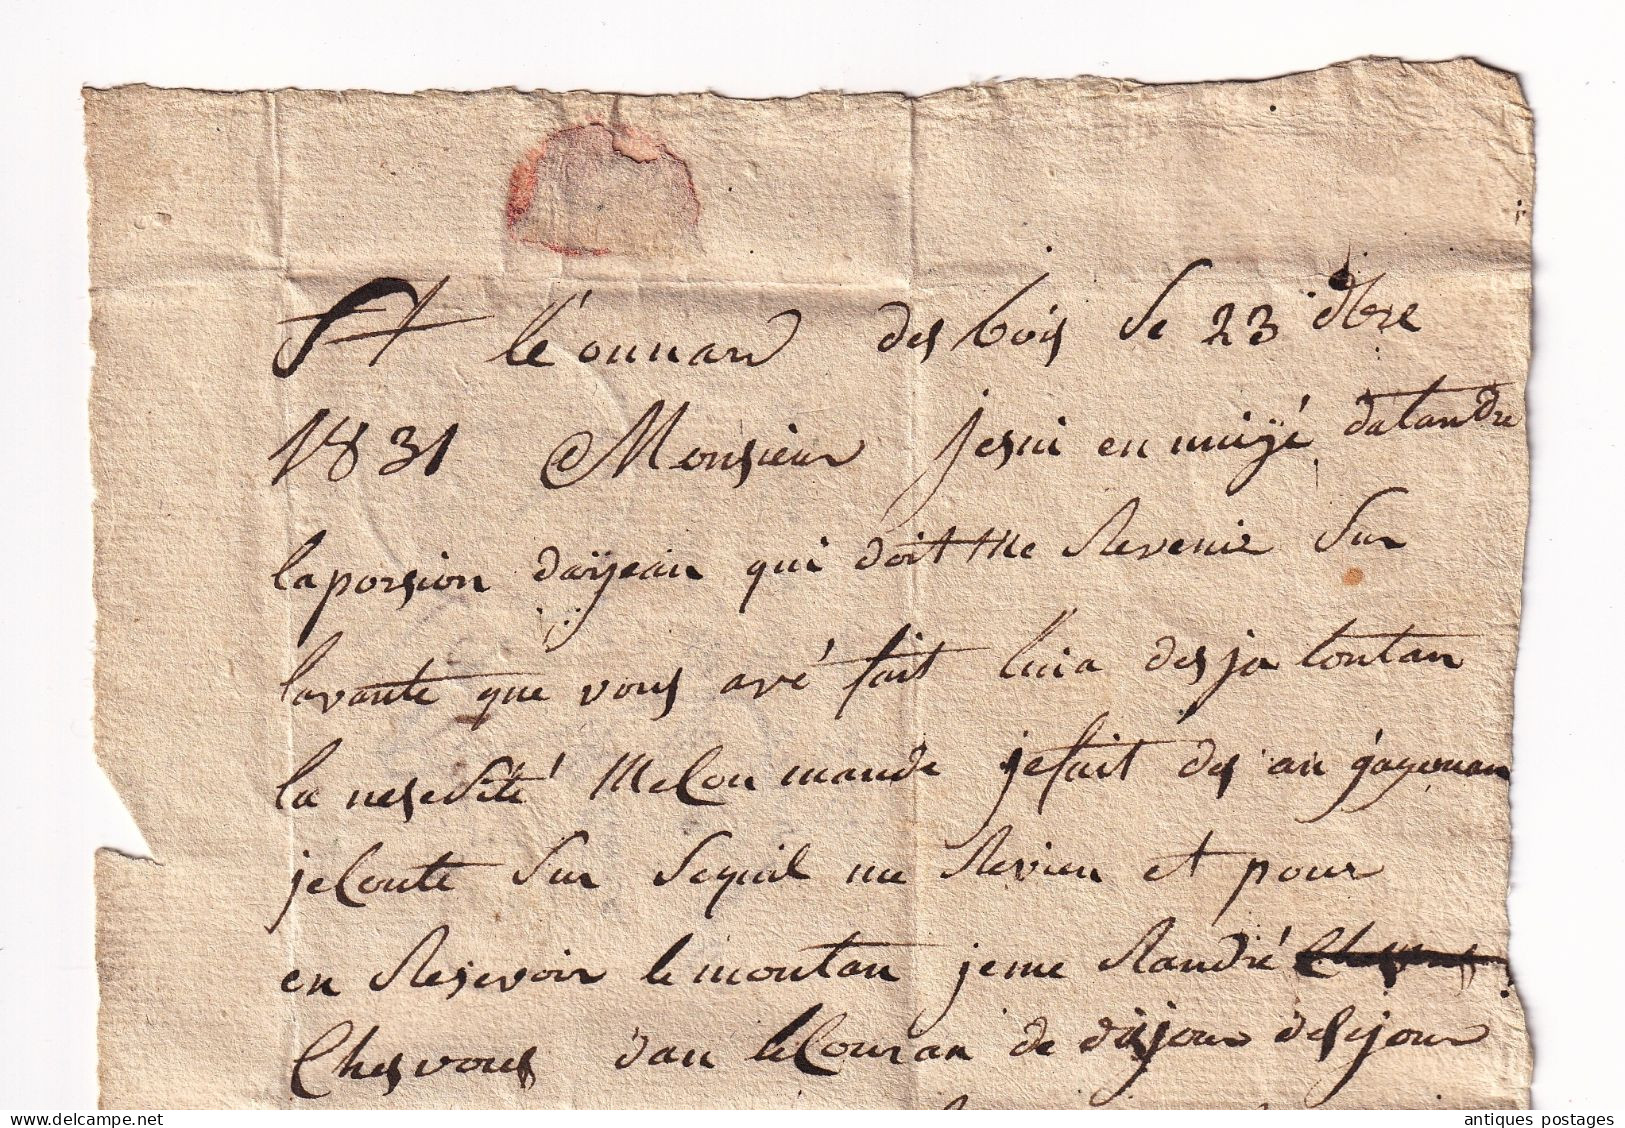 St léonnard des bois le 23 dbre
1831 Monsieur jesui ennuiyé datandre
la porsion daryean qui doit me Revenir Sur
lavante que vous avé fait luia desja lontan
la nesesité me Conmande jefait des an gageman
je Conte Sur Sequil me Revien et pour
en Resevoir le montan jeme Randré
Chesvous dan le Couran de disjour desejour
antiques postages